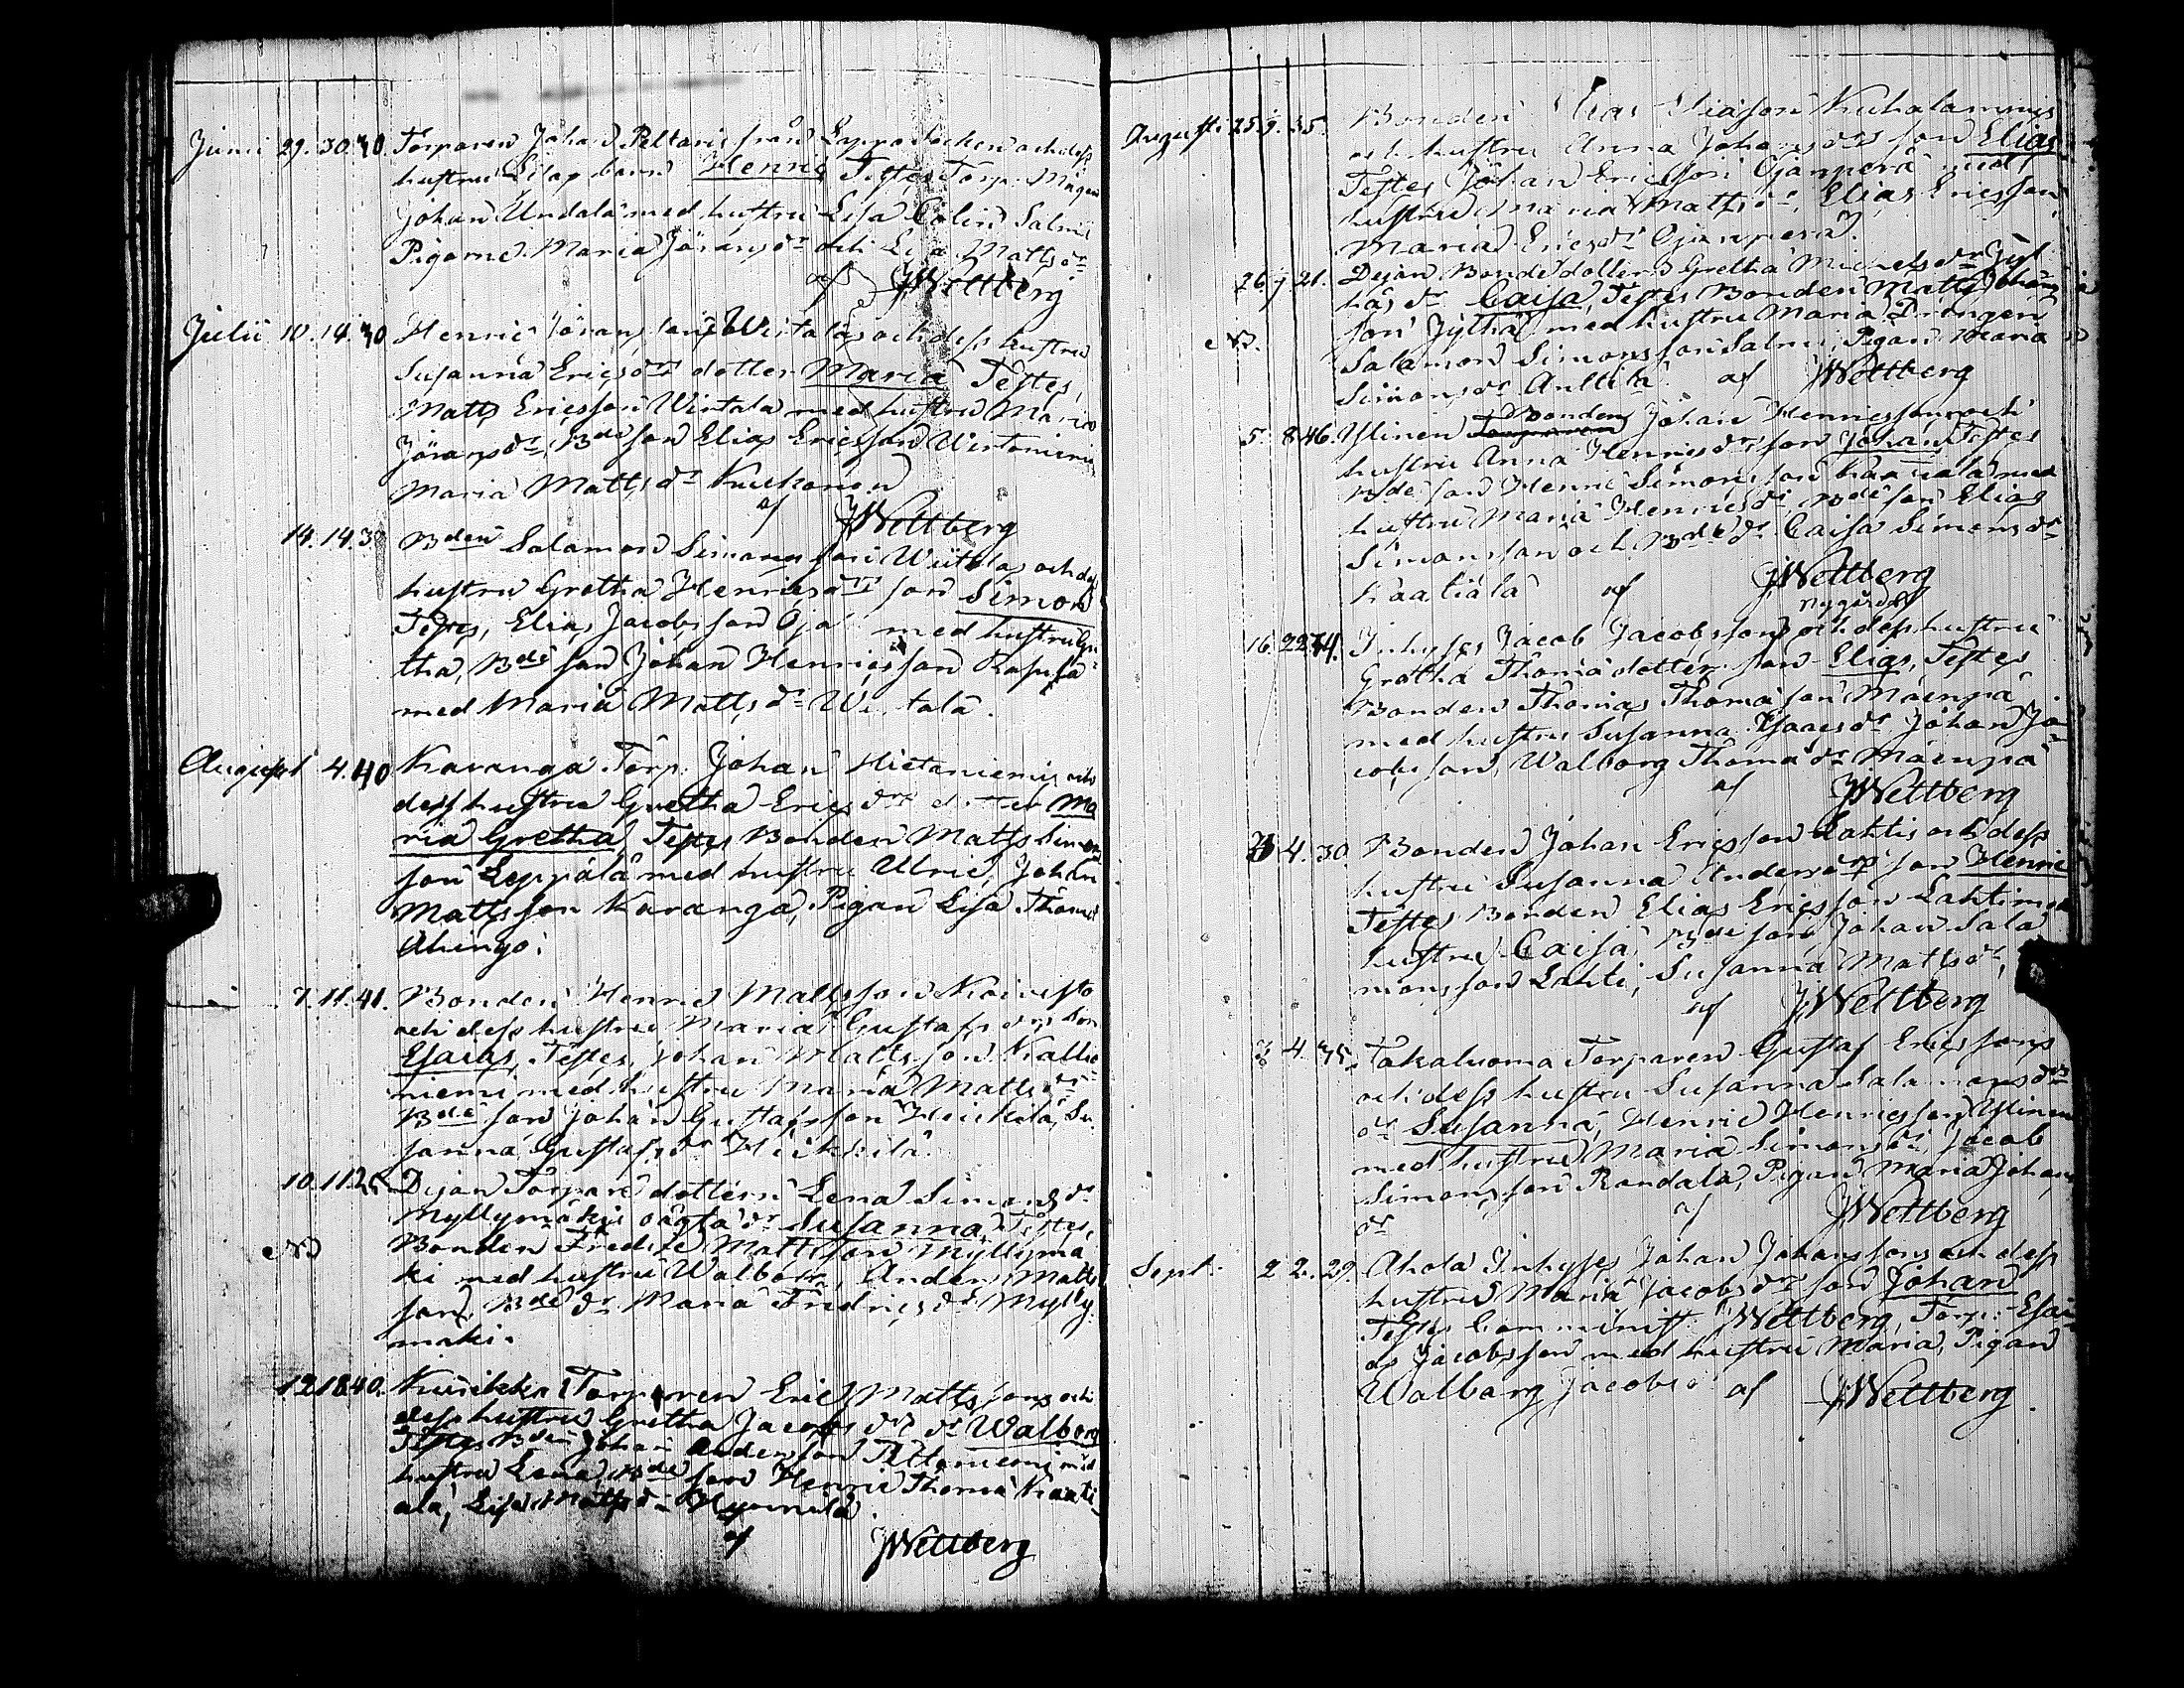 Junii 29. 30. 40. Torparen Johan Peltaris från Lappo Socken och dess
hustru Lisas barn Henric Testes Torp: Mågen
Johan Undala med hustru Lisa Colin Salmi
Pigorne Maria Jöransdr och Lisa Mattsdr
af JWettberg
Julii 10. 14. 30 Henric Jöransson Wirtalas och dess hustru
Susanna Ericsdrs dotter Maria Testes,
Matts Ericsson Wirtala med hustru Maria
Jöransdr, Bde son Elias Ericsson
Maria Mattsdr Kuukanen
af JWettberg
14. 14. 3 Bden Salamon Simonsson Wiitalas och dess
hustru Gretha Henricsdrs son Simon
Testes, Elias Jacobsson Oja med hustru Gre
tha, Bde son Johan Henricsson
med Maria Mattsdr
August 4. 40 Karanga Torp: Johan Hietaniemis och
dess hustru Gretha Ericsdrs dotter Ma
ria Gretha, Testes Bonden Matts Simons
son Leppälä med hustru Ulric, Johan
Mattsson Karanga, Pigan Lisa Thomæ
Ahingo.
7. 11. 41. Bonden Henric Mattsson Koivisto
och dess hustru Maria Gustafsdrs son
Esaias, Testes, Johan Mattsson Kallio
niemi med hustru Maria Mattsdr
Bde son Johan Gustafsson Heikkilä, Su
sanna Gustafsdr Heikkilä.
10. 11. 25 Dejan Torpare dottern Lena Simonsdr
Myllymäkis oägta dr Susanna Testes,
NB Bonden Fredric Mattsson Myllymä
ki med hustru Walborg, Anders Matts
son, Bde dr Maria Fredricsdr Mylly
mäki.
12 18 40. Kurikka Torparen Eric Mattssons och
dess hustru Gretha Jacobsdrs dr Walborg
Testes Bden Johan Andersson Peltoniemi med
hustru Lena, Bde son Henric Thomæ Kaati
ala, Lisa Mattsdr
af JWettberg
Augusti 25. 9. 35. Bonden Elias Eliæson Kuhalammis
och hustru Anna Johansdrs son Elias
Testes Johan Ericsson Ojanperä med
hustru Maria Mattsdr, Elias Ericsson,
Maria Ericsdr Ojanperä.
26. 9 21. Dejan Bonde dottern Gretha Michelsdr Jyl
häs dr Caisa, Testes Bonden Matts Johans
son Jylhä med hustru Maria Drängen
NB. Salamon Simonsson Salmi, Pigan Maria
Simonsdr Anttila af JWettberg
5. 8 46. Ylinen Bonden Johan Henricssons och
hustru Anna Henricsdrs son Johan Testes
Bde son Henric Simonsson Kaatiala med
hustru Maria Henricsdr, Bde son Elias
Simonsson och Bde dr Caisa Simonsdr
Kaatiala af JWettberg
Nygård
16. 22 44. Inhyses Jacob Jacobssons och dess hustru
Gretha Thomædotters son Elias, Testes
Bonden Thomas Thomæson Mäenpä
med hustru Susanna Isaacsdr Johan Ja
cobsson, Walborg Thomædr Mäenpä
af JWettberg
4. 30 Bonden Johan Ericsson Lahtis och dess
hustru Susanna Andersdrs son Henric
Testes Bonden Elias Ericsson Lahti med
hustru Caisa, Bde son Johan Sala
monsson Lahti, Susanna Mattsdr,
af JWettberg
3 4. 35. Takaluoma Torparen Gustaf Ericssons
och dess hustru Susanna Salamonsdrs
dr Susanna, Henric Henricsson Ylinen
med hustru Maria Simonsdr, Jacob
Simonsson Randala, Pigan Maria Johans
dr af JWettberg
Sept: 2 2. 29. Ahola Inhyses Johan Johanssons och dess
hustru Maria Jacobsdrs son Johan
Testes Comminist: JWettberg, Torp: Esai
as Jacobsson med hustru Maria, Pigan
Walborg Jacobsdr af JWettberg